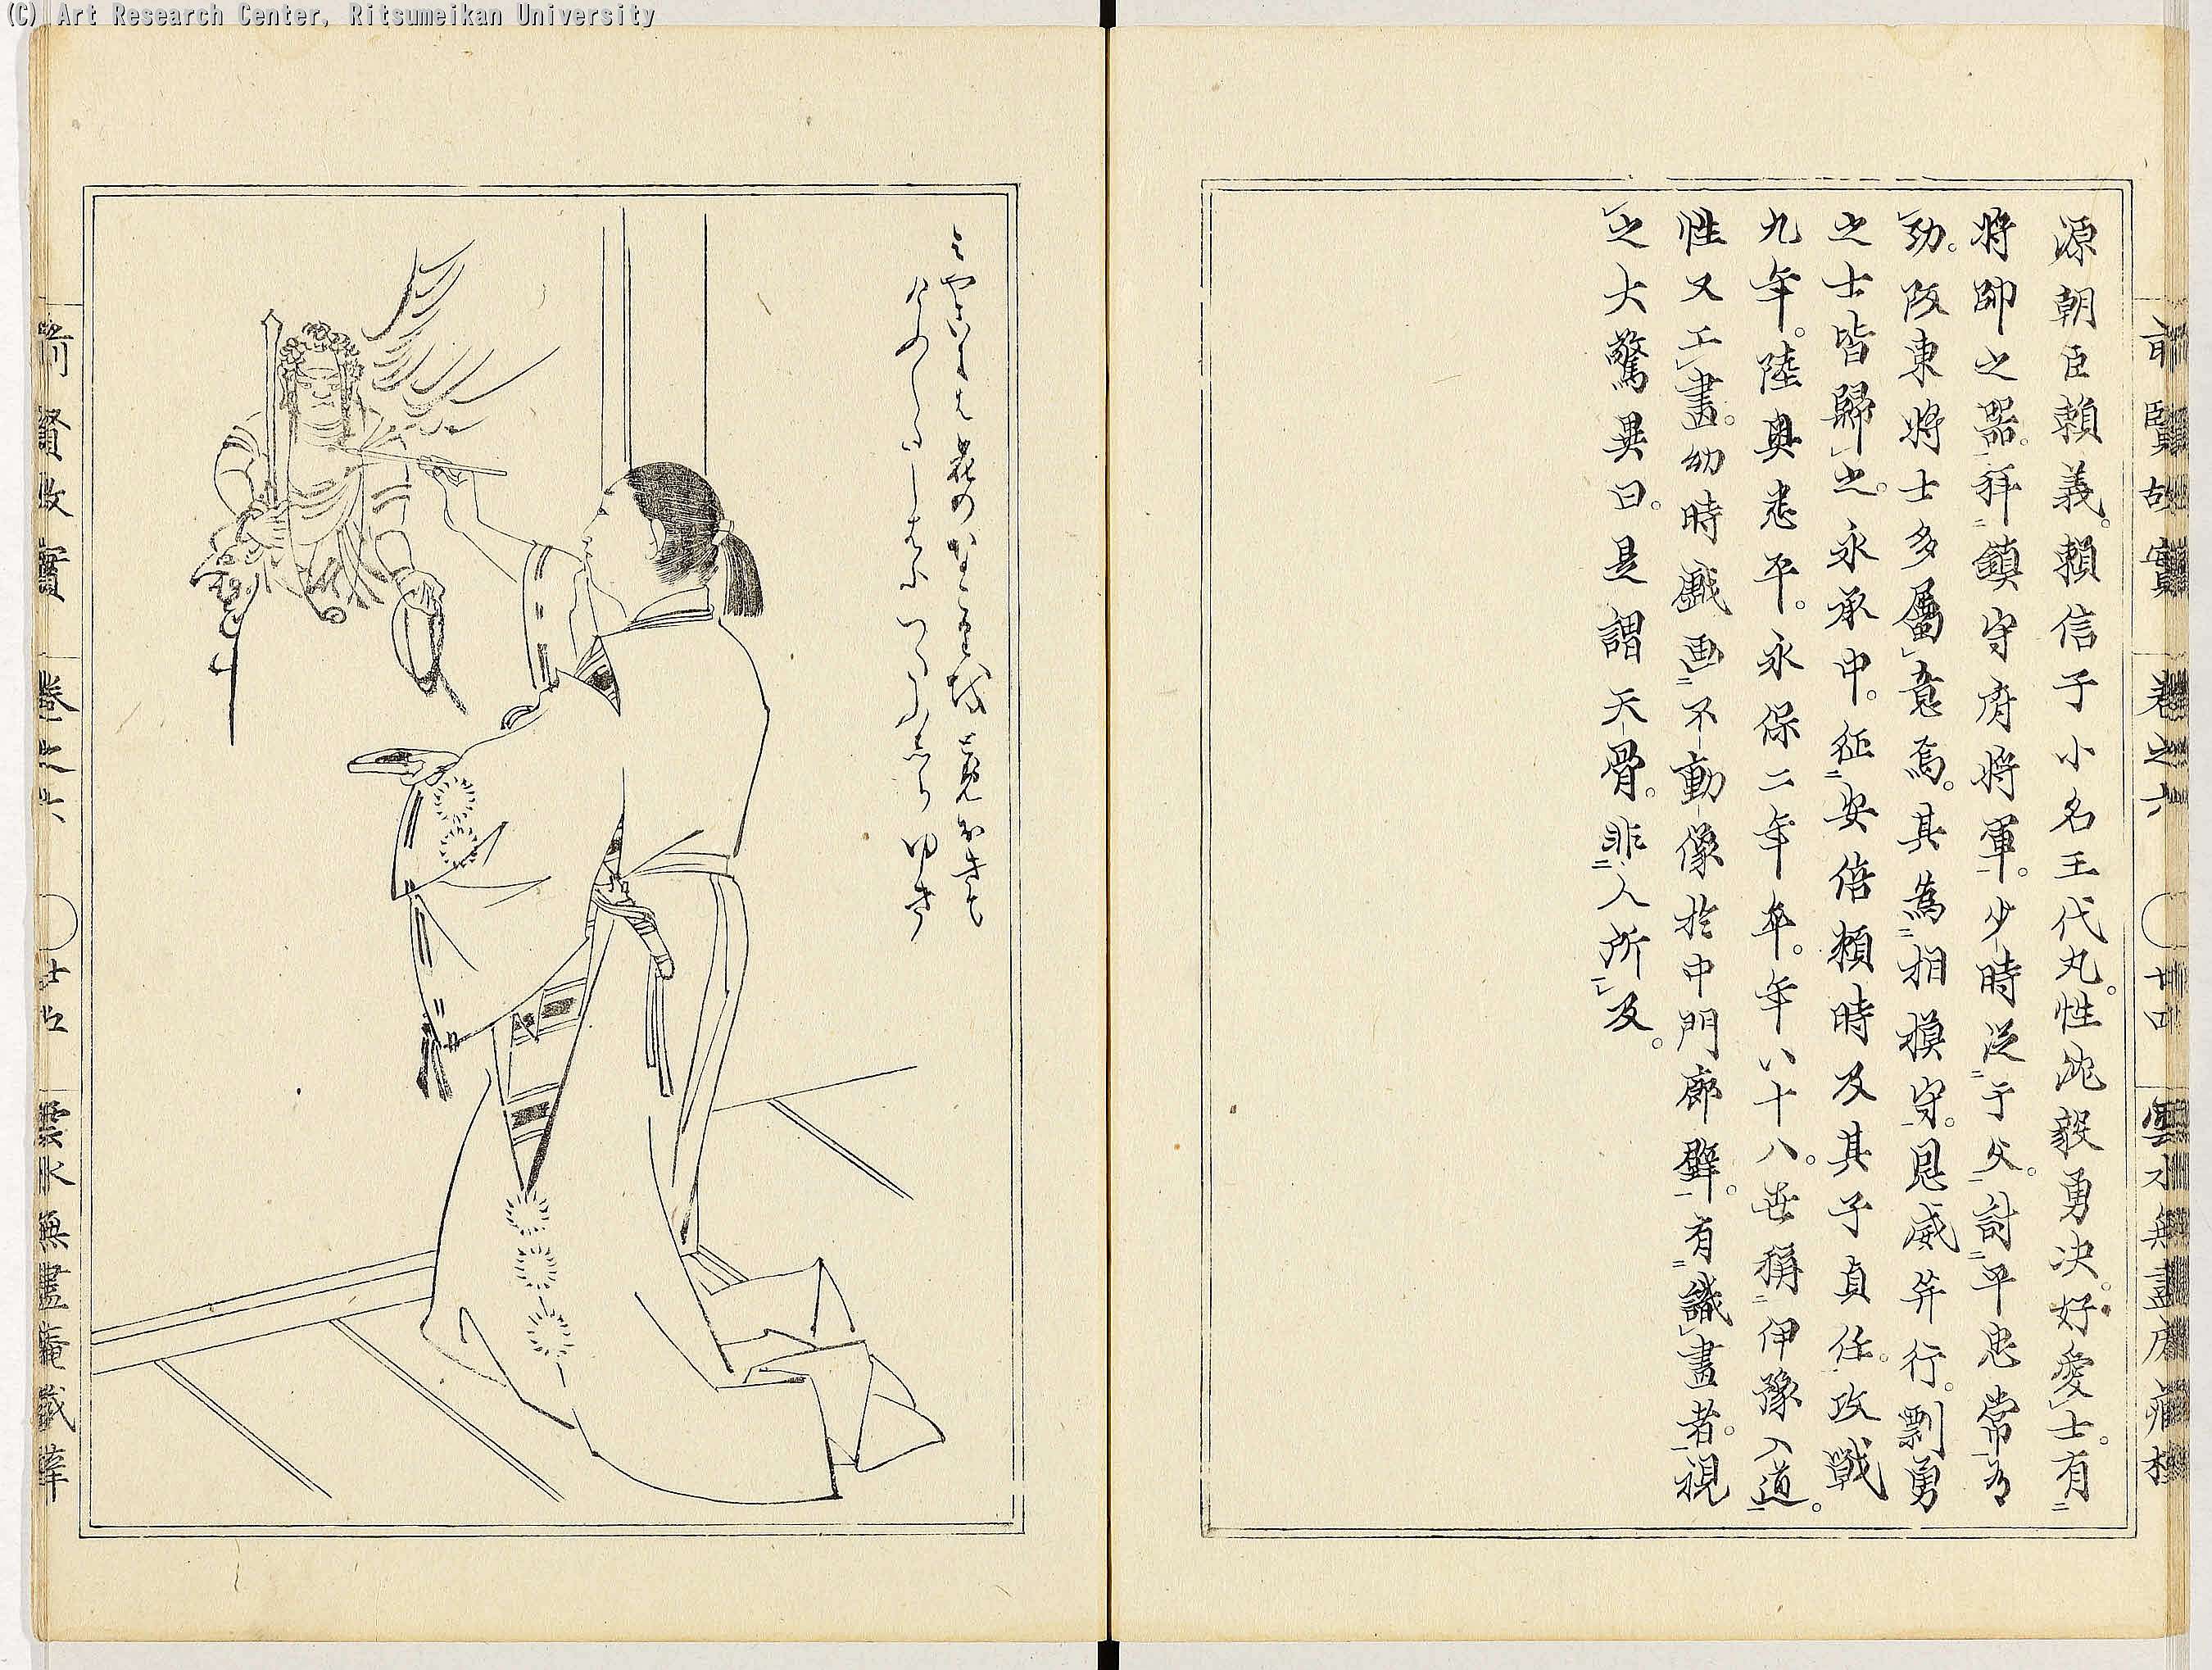 (C) Art Research Center, Ritsumeikan University
前賢故實 卷之六 ○廿四 雲水無盡庵藏梓
源朝臣賴義。賴信子小名王代丸。性沈毅勇决。好愛士。有
將帥之器。拜鎮守府將軍。少時從于父。討平忠常有
勁。阪東將士多屬意焉。其為相模守。恩威并行。剽勇
之士皆歸之。永承中。征安倍賴時及其子貞任。攻戰
九年。陸奥悉平。永保二年卒。年八十八。世稱伊豫入道。
性又工畫。幼時戲画不動像於中門廊壁。有識畫者。視
之大驚異曰。是謂天骨。非人所及。
みやこには花のなこりを
ゆき
前賢故實 卷之六 ○廿五 雲水無盡庵藏梓